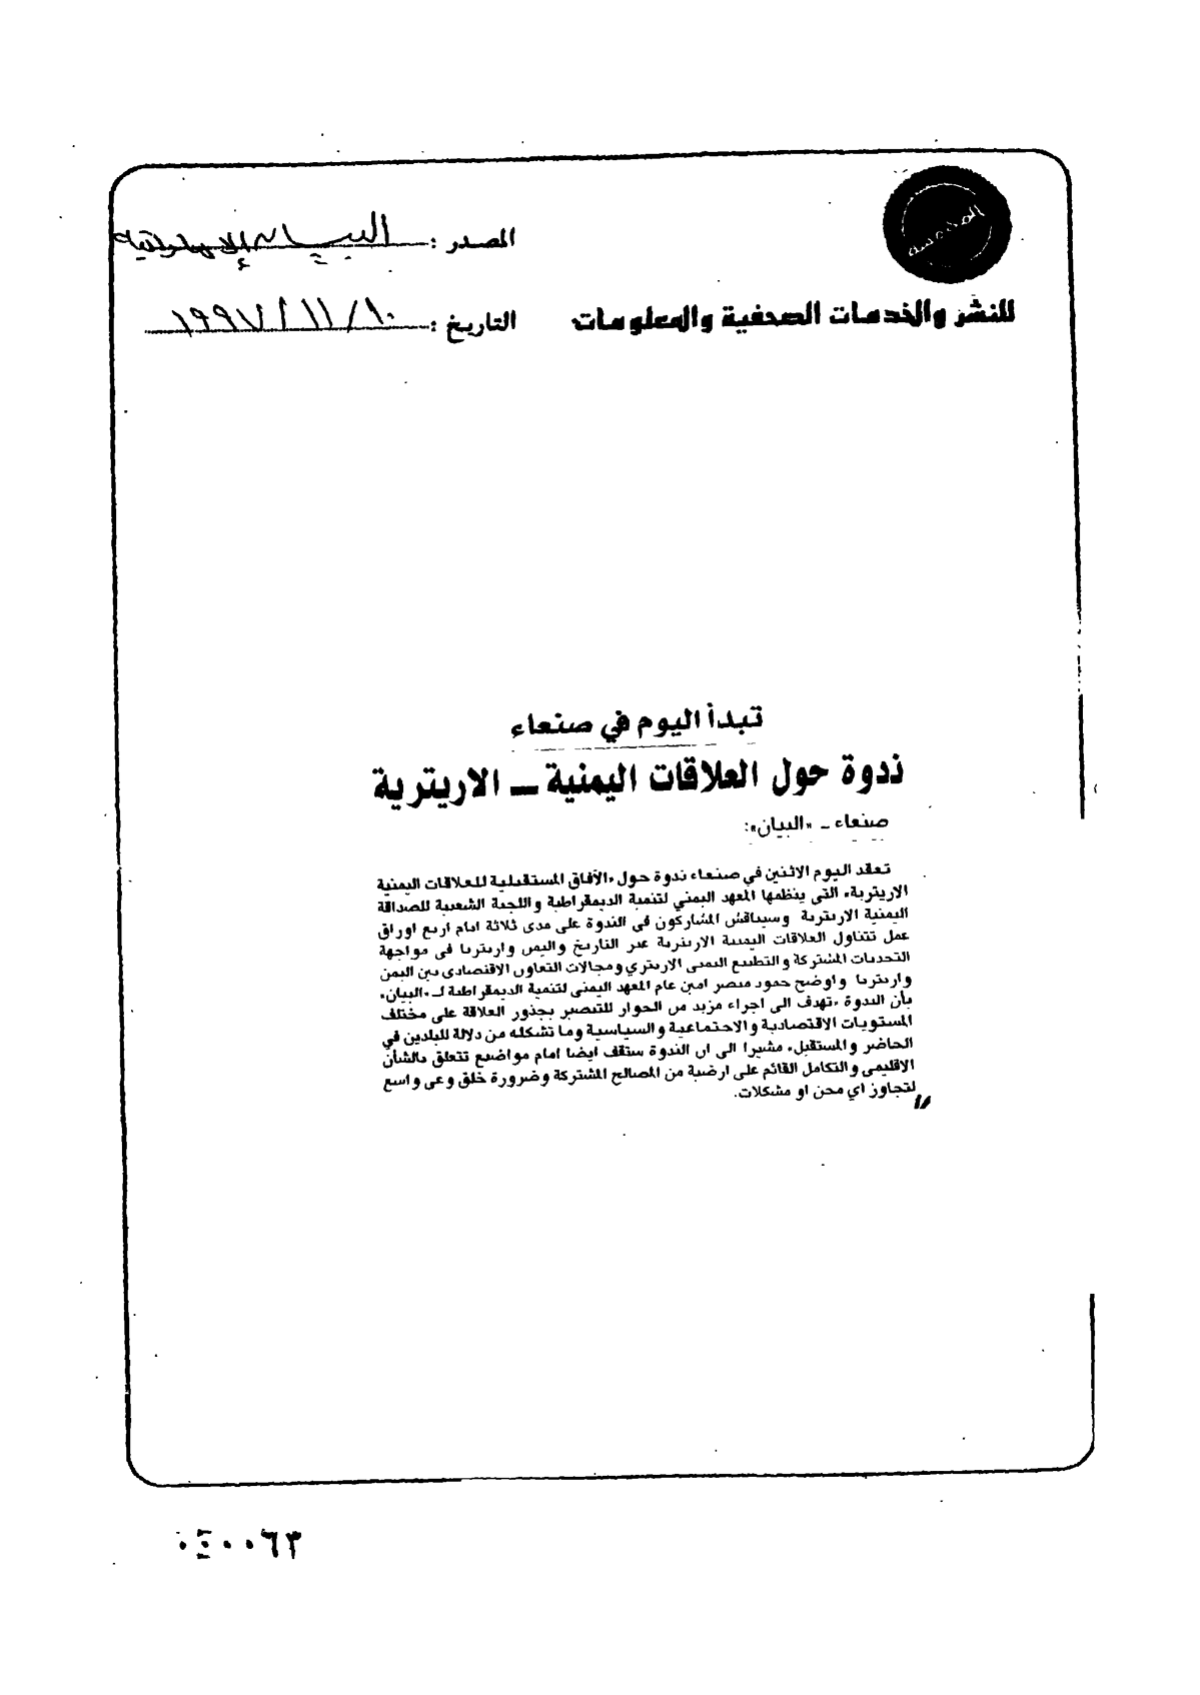 المصدر : البيان الإماراتية
للنشر والخدمات الصحفية والمعلومات
التاريخ : ١٠ / ١١ / ١٩٩٧
تبدأ اليوم في صنعاء
ندوة حول العلاقات اليمنية ــ الاريترية
صنعاء ـ «البيان»:
تعقد اليوم الاثنين في صنعاء ندوة حول «الآفاق المستقبلية للعلاقات اليمنية
الاريترية» التي ينظمها المعهد اليمني لتنمية الديمقراطية واللجنة الشعبية للصداقة
اليمنية الاريترية وسيناقش المشاركون في الندوة على مدى ثلاثة ايام اربع اوراق
عمل تتناول العلاقات اليمنية الاريترية عبر التاريخ واليمن واريتريا في مواجهة
التحديات المشتركة والتطبيع اليمني الاريتري ومجالات التعاون الاقتصادي بين اليمن
واريتريا واوضح حمود منصر امين عام المعهد اليمني لتنمية الديمقراطية لـ «البيان»
بأن الندوة «تهدف الى اجراء مزيد من الحوار للتبصير بجذور العلاقة على مختلف
المستويات الاقتصادية والاجتماعية والسياسية وما تشكله من دلالة للبلدين في
الحاضر والمستقبل» مشيرا الى ان الندوة ستقف ايضا امام مواضيع تتعلق بالشأن
الاقليمي والتكامل القائم على ارضية من المصالح المشتركة وضرورة خلق وعي واسع
لتجاوز اي محن او مشكلات.